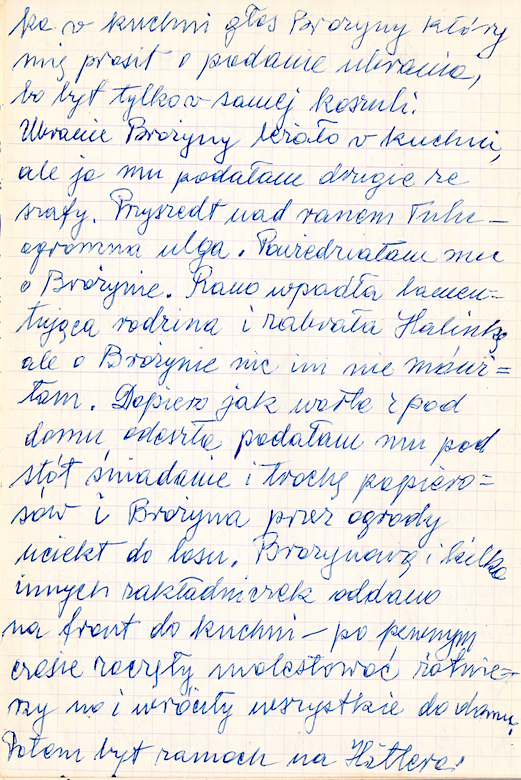 ka w kuchni głos Brożyny który
mię prosił o podanie ubrania,
bo był tylko w samej koszuli.
Ubranie Brożyny leżało w kuchni,
ale ja mu podałam drugie ze
szafy. Przyszedł nad ranem Tulu –
ogromna ulga. Powiedziałam mu
o Brożynie. Rano wpadła lamen=
tująca rodzina i zabrała Halinkę,
ale o Brożynie nic im nie mówi=
łam. Dopiero jak warta z pod
domu odeszła podałam mu pod
stół śniadanie i trochę papiero=
sów i Brożyna przez ogrody
uciekł do lasu. Brożynową i kilka
innych zakładniczek oddano
na front do kuchni – po pewnym
czasie zaczęły molestować żołnie=
rzy no i wróciły wszystkie do domu.
Potem był zamach na Hitlera.